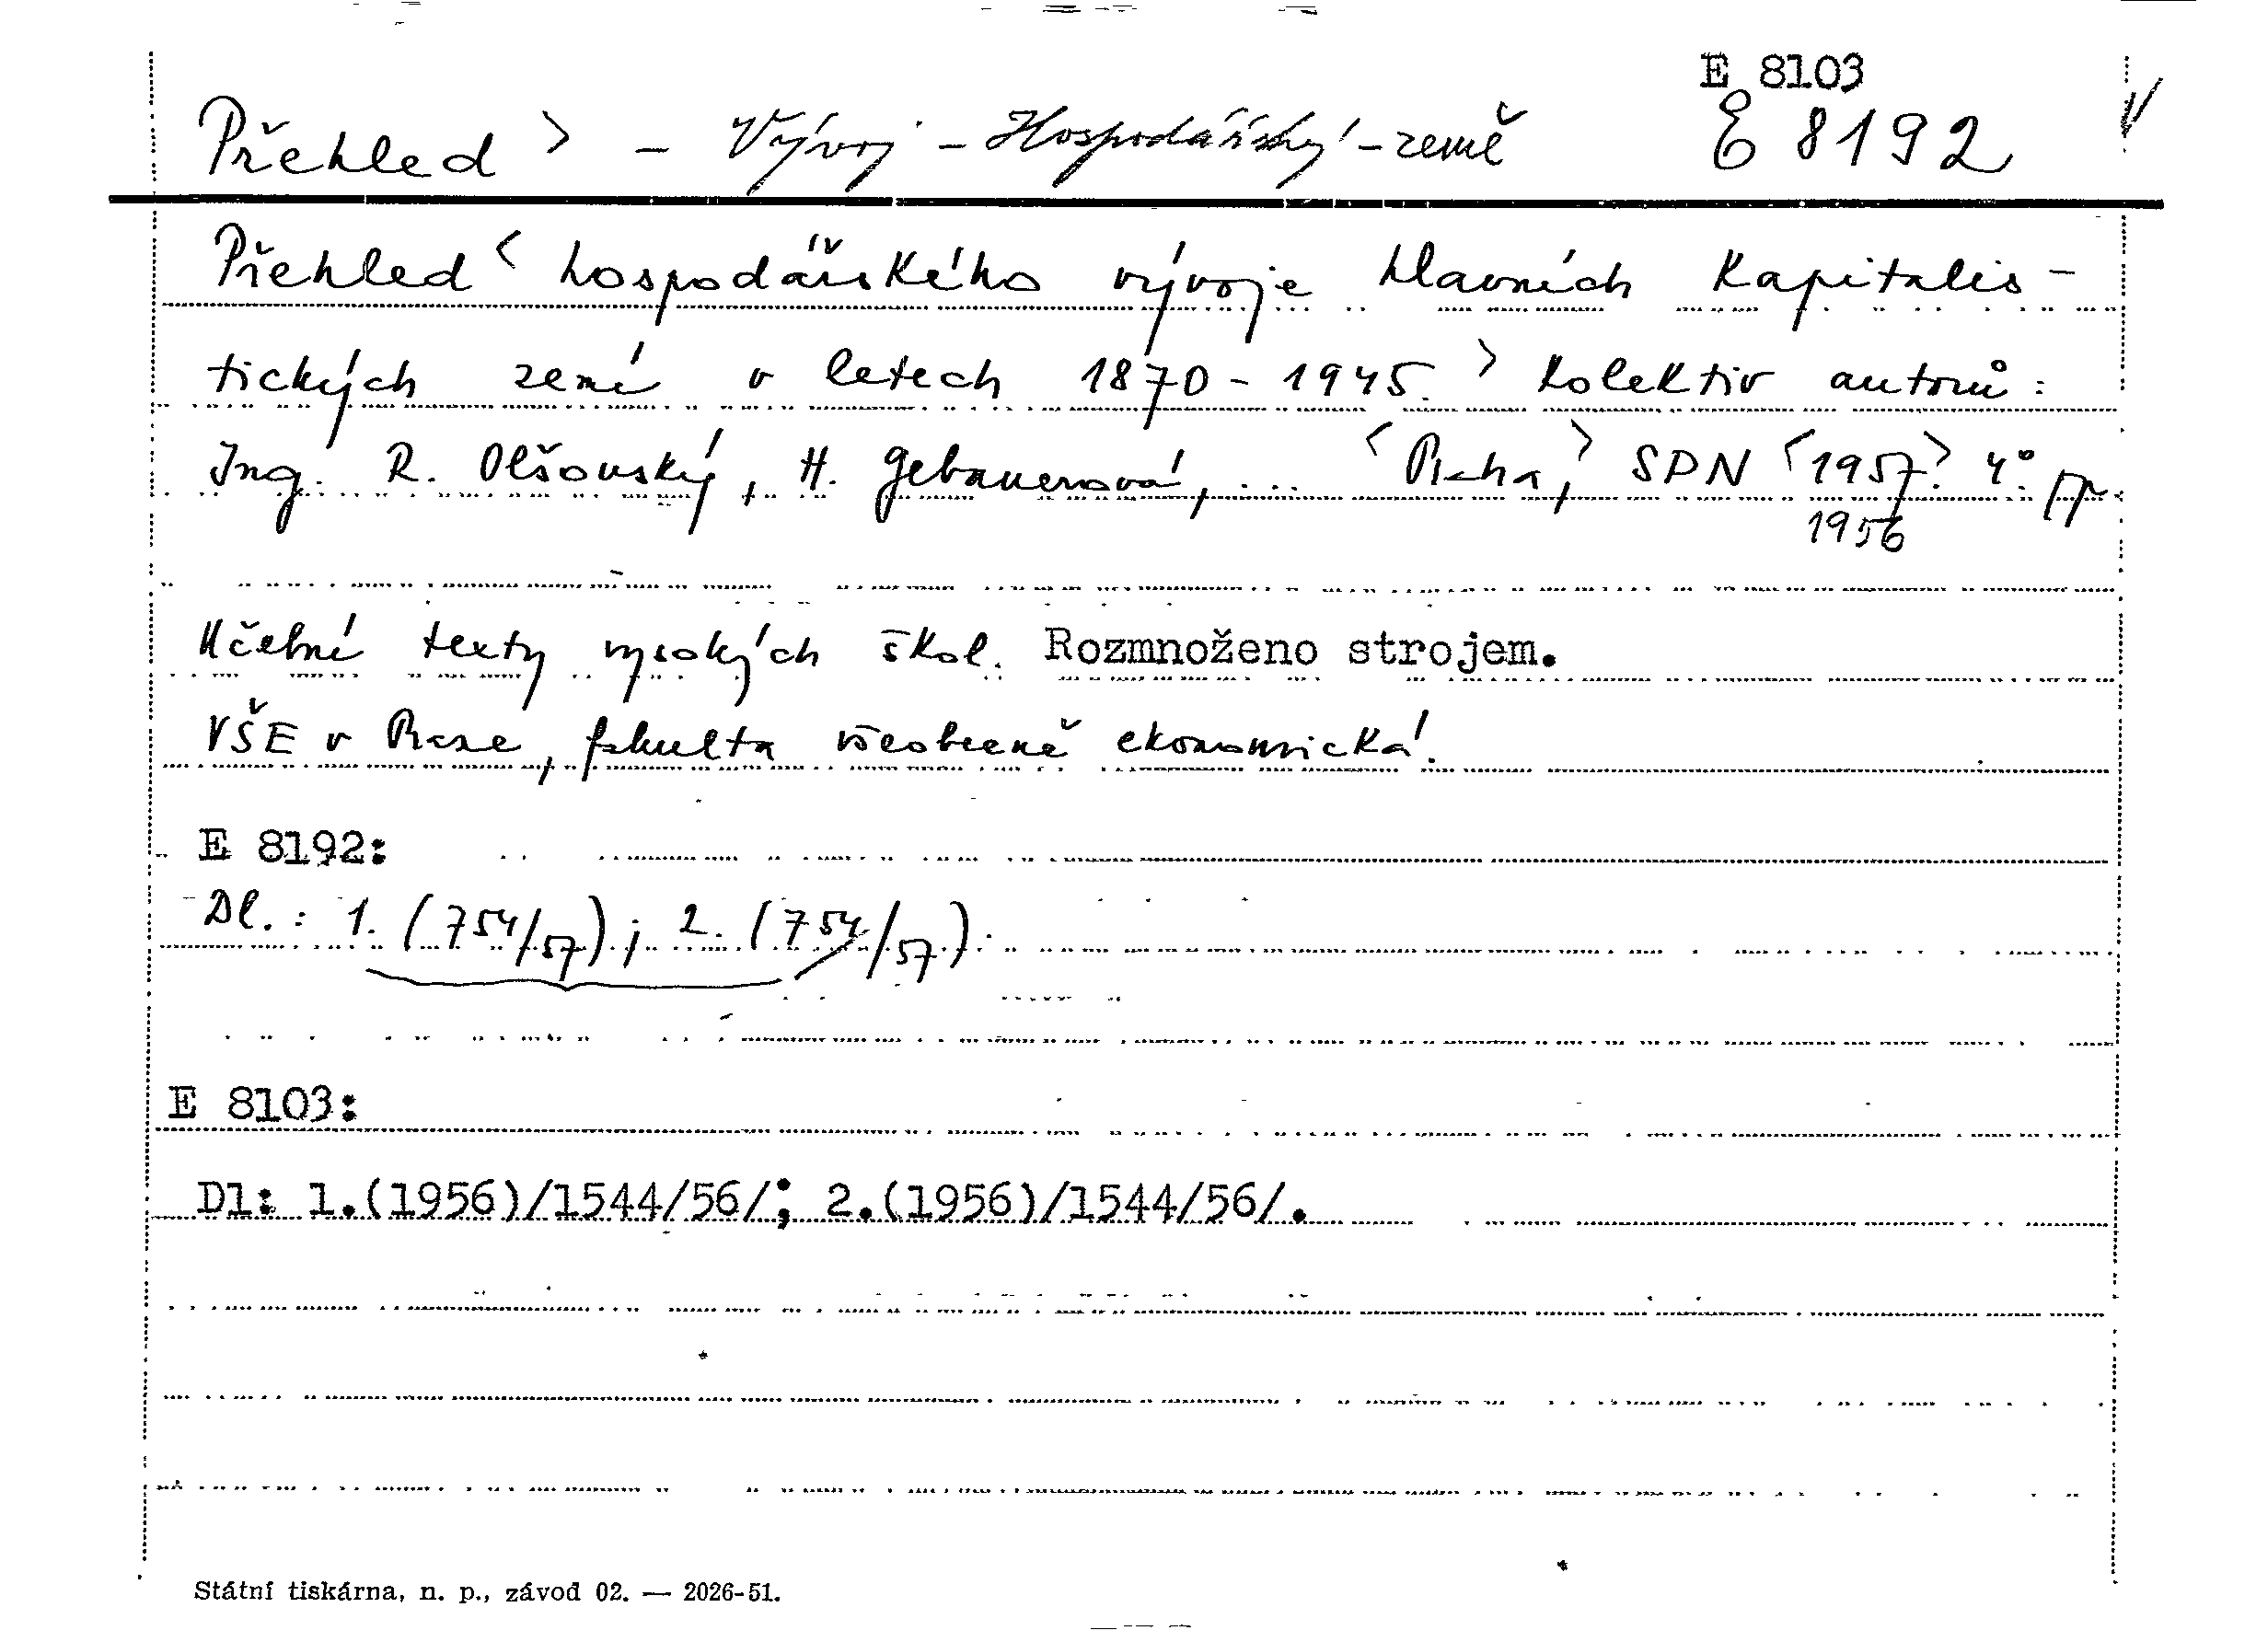 E 8103
Přehled > - Vývoj - Hospodářský - země E 8192
Přehled < hospodářského vývoje hlavních kapitalis-
tických zemí v letech 1870 - 1945. > Kolektiv autorů:
Ing. R. Olšovský, H. Gebauerová, ... <Praha,> SPN <1957.> 4°. pp.
1956
Učební texty vysokých škol. Rozmnoženo strojem.
VŠE v Praze, fakulta všeobecně ekonomická.
E 8192:
Dl.: 1. (754/57); 2. (754/57).
E 8103:
Dl: 1.(1956)/1544/56/; 2.(1956)/1544/56/.
Státní tiskárna, n. p., závod 02. — 2026-51.